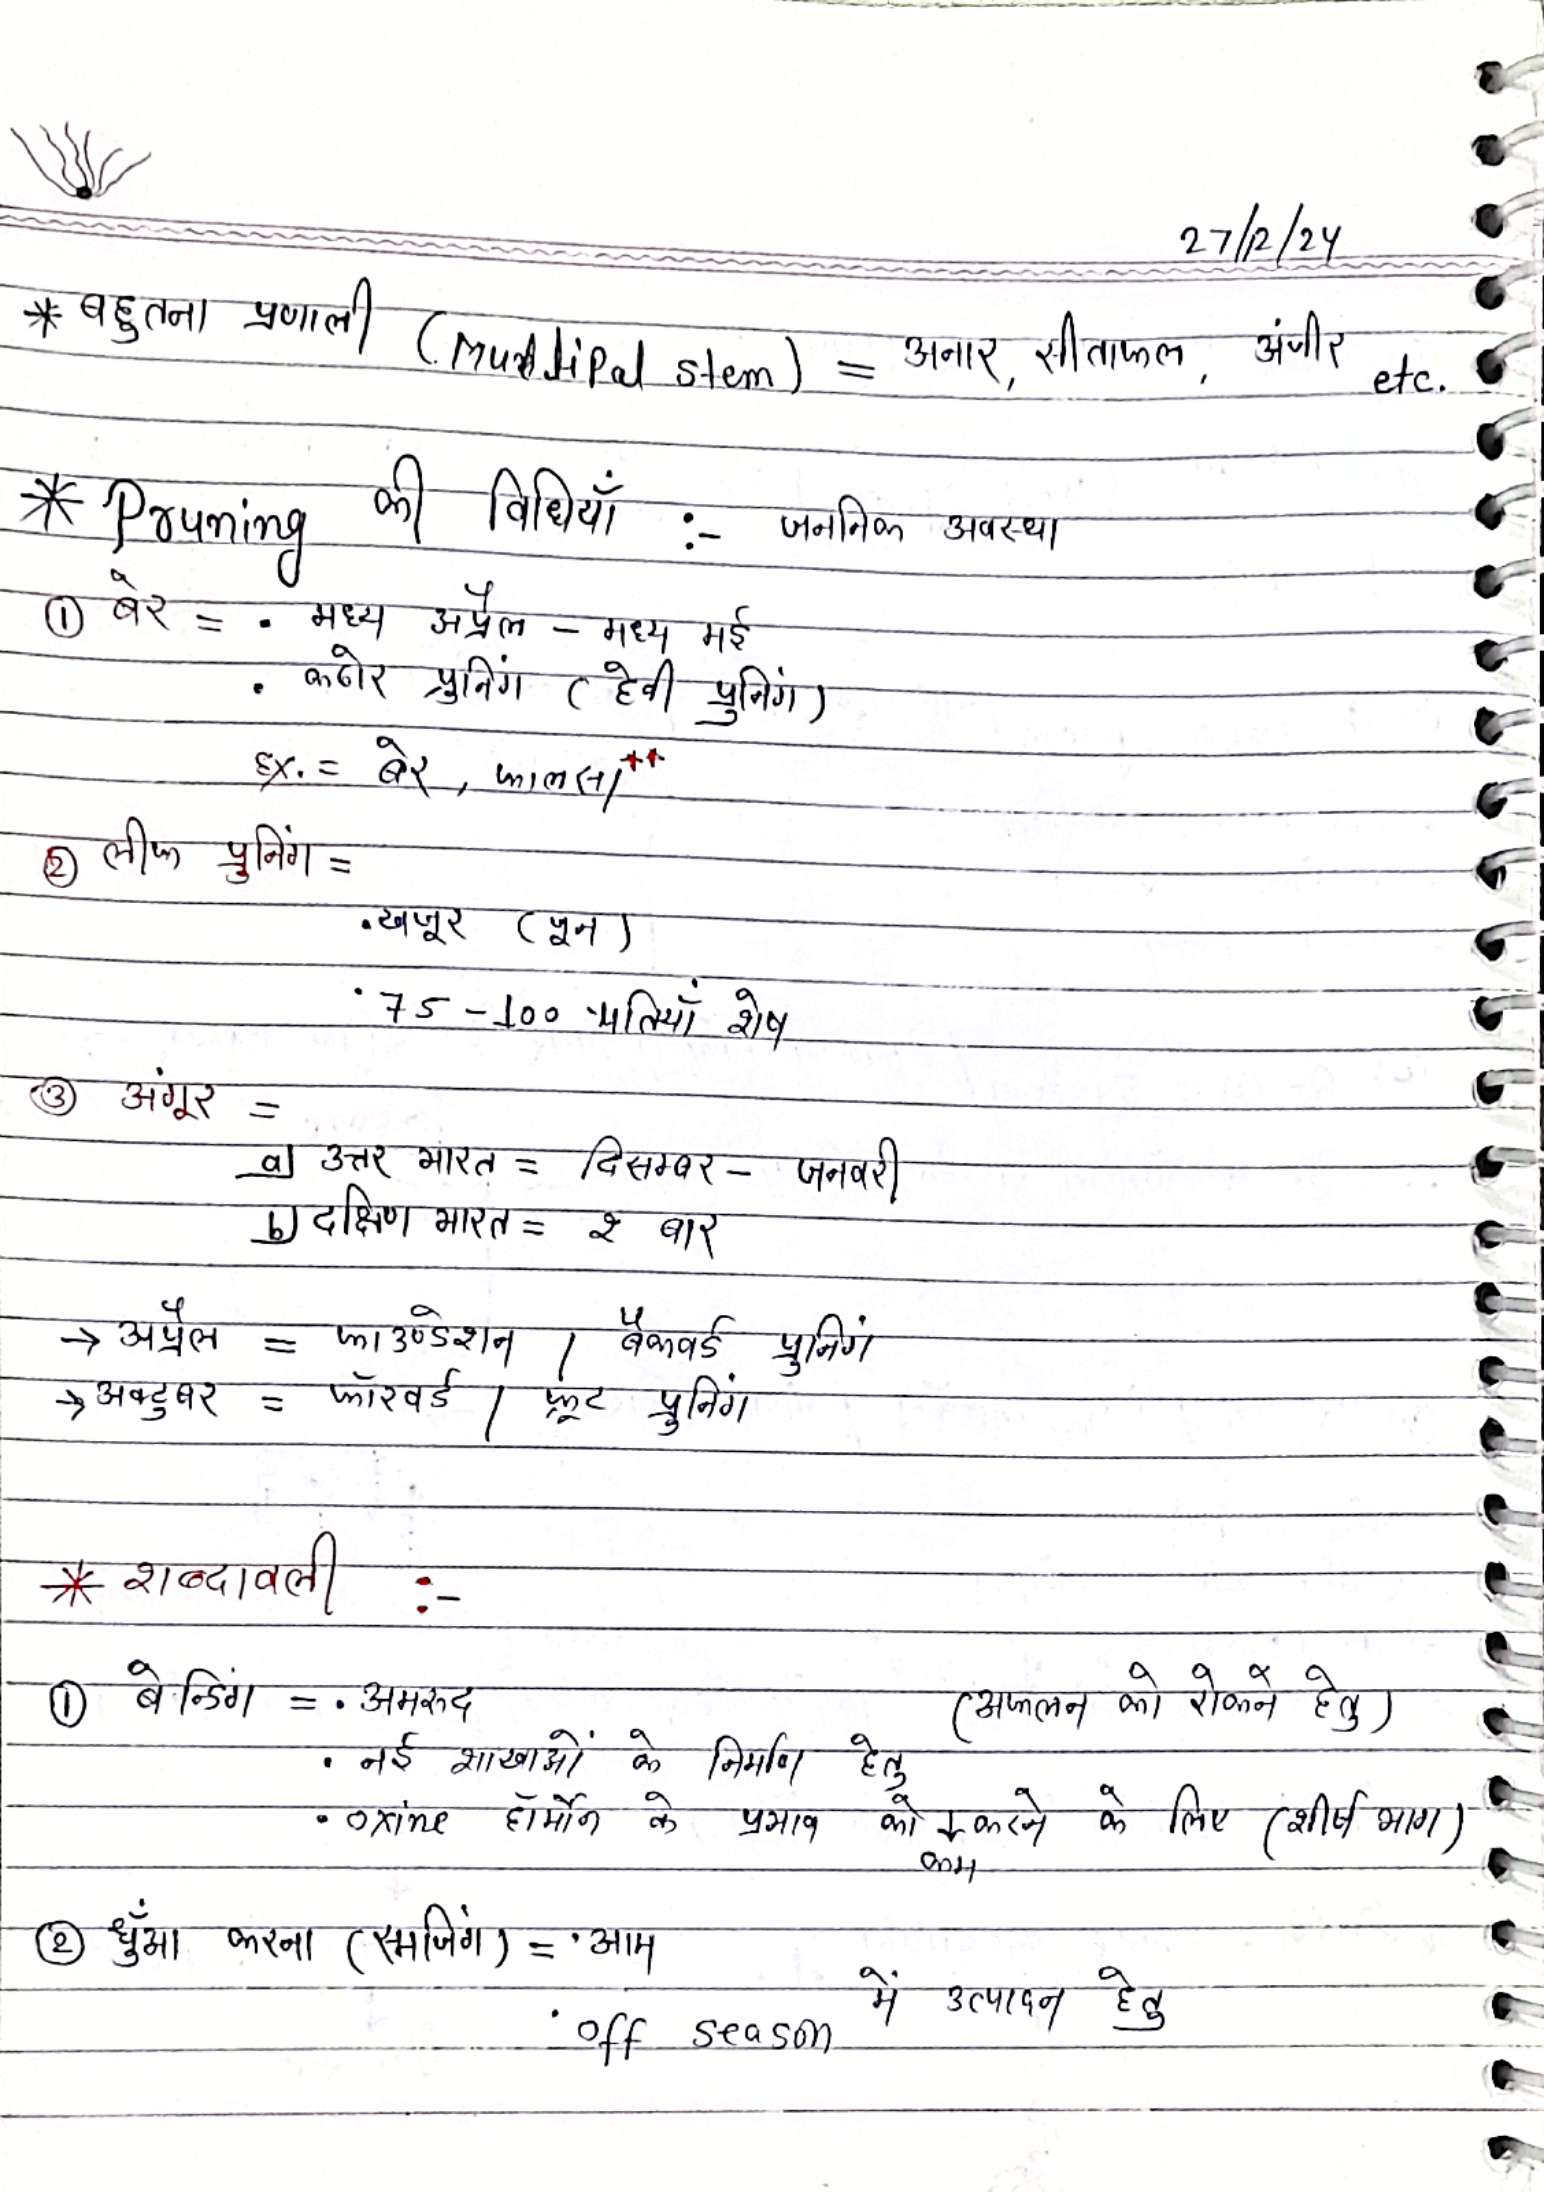 27/12/24
* बहुतना प्रणाली (Multipal stem) = अनार, सीताफल, अंजीर etc.
* Pruning की विधियाँ :- जननिक अवस्था
① बेर = • मध्य अप्रैल - मध्य मई
• कठोर प्रुनिंग (हेवी प्रुनिंग)
Ex. = बेर, फालसा**
② लीफ प्रुनिंग =
• खजूर (पून)
• 75 - 100 पतियाँ शेष
③ अंगूर =
a) उत्तर भारत = दिसम्बर - जनवरी
b) दक्षिण भारत = २ बार
→ अप्रैल = फाउण्डेशन / बैकवर्ड प्रुनिंग
→ अक्टुबर = फॉरवर्ड / फ्रूट प्रुनिंग
* शब्दावली :-
① बेन्डिंग = • अमरुद (अफलन को रोकने हेतु)
• नई शाखाओं के निर्माण हेतु
• oxine हॉर्मोन के प्रभाव को ↓ करने के लिए (शीर्ष भाग)
कम
② धुँआ करना (स्मजिंग) = • आम
• off season में उत्पादन हेतु